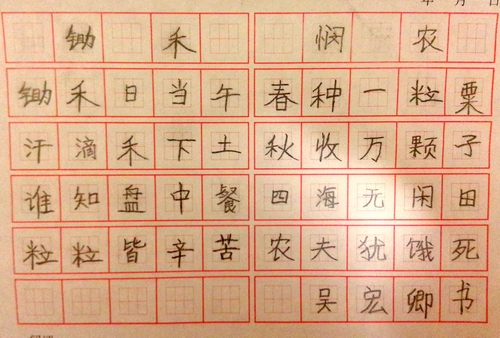 锄禾
锄禾日当午
汗滴禾下土
谁知盘中餐
粒粒皆辛苦
悯农
春种一粒粟
秋收万颗子
四海无闲田
农夫犹饿死
吴宏卿书